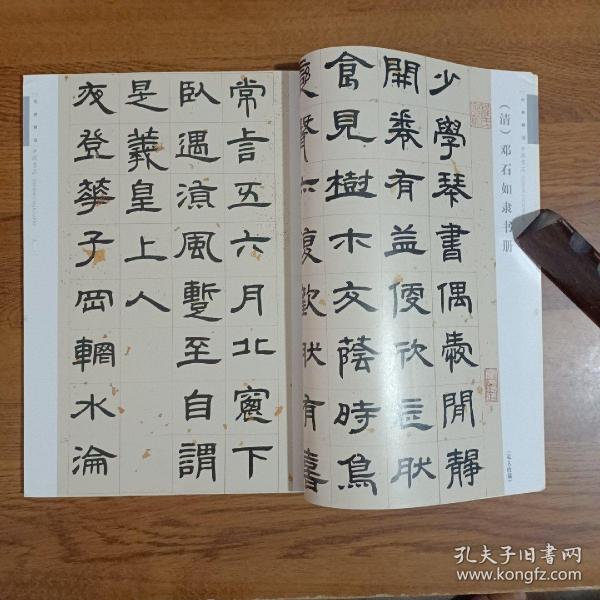 （清）邓石如隶书册
少學琴書偶愛閒靜
開卷有益便欣忘肰
食見樹木交蔭時鳥
變聲亦復歡肰有喜
（私人收藏）
常言五六月北窻下
臥遇涼風暫至自謂
是羲皇上人
夜登華子岡輞水淪
孔夫子旧书网
www.kongfz.com